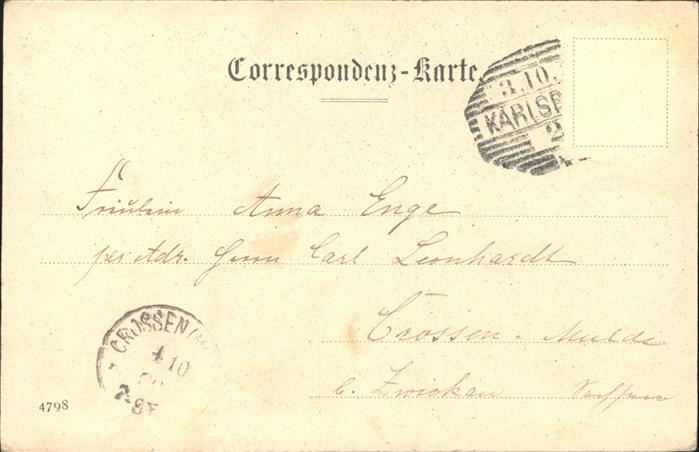 Correspondenz-Karte
3.10.
KARLSB
2
4
Fräulein Anna Enge
per Adr. Herrn Carl Leonhardt
Crossen-Mulde
b. Zwickau Sachsen
CROSSEN (M
4 10
7-8
4798